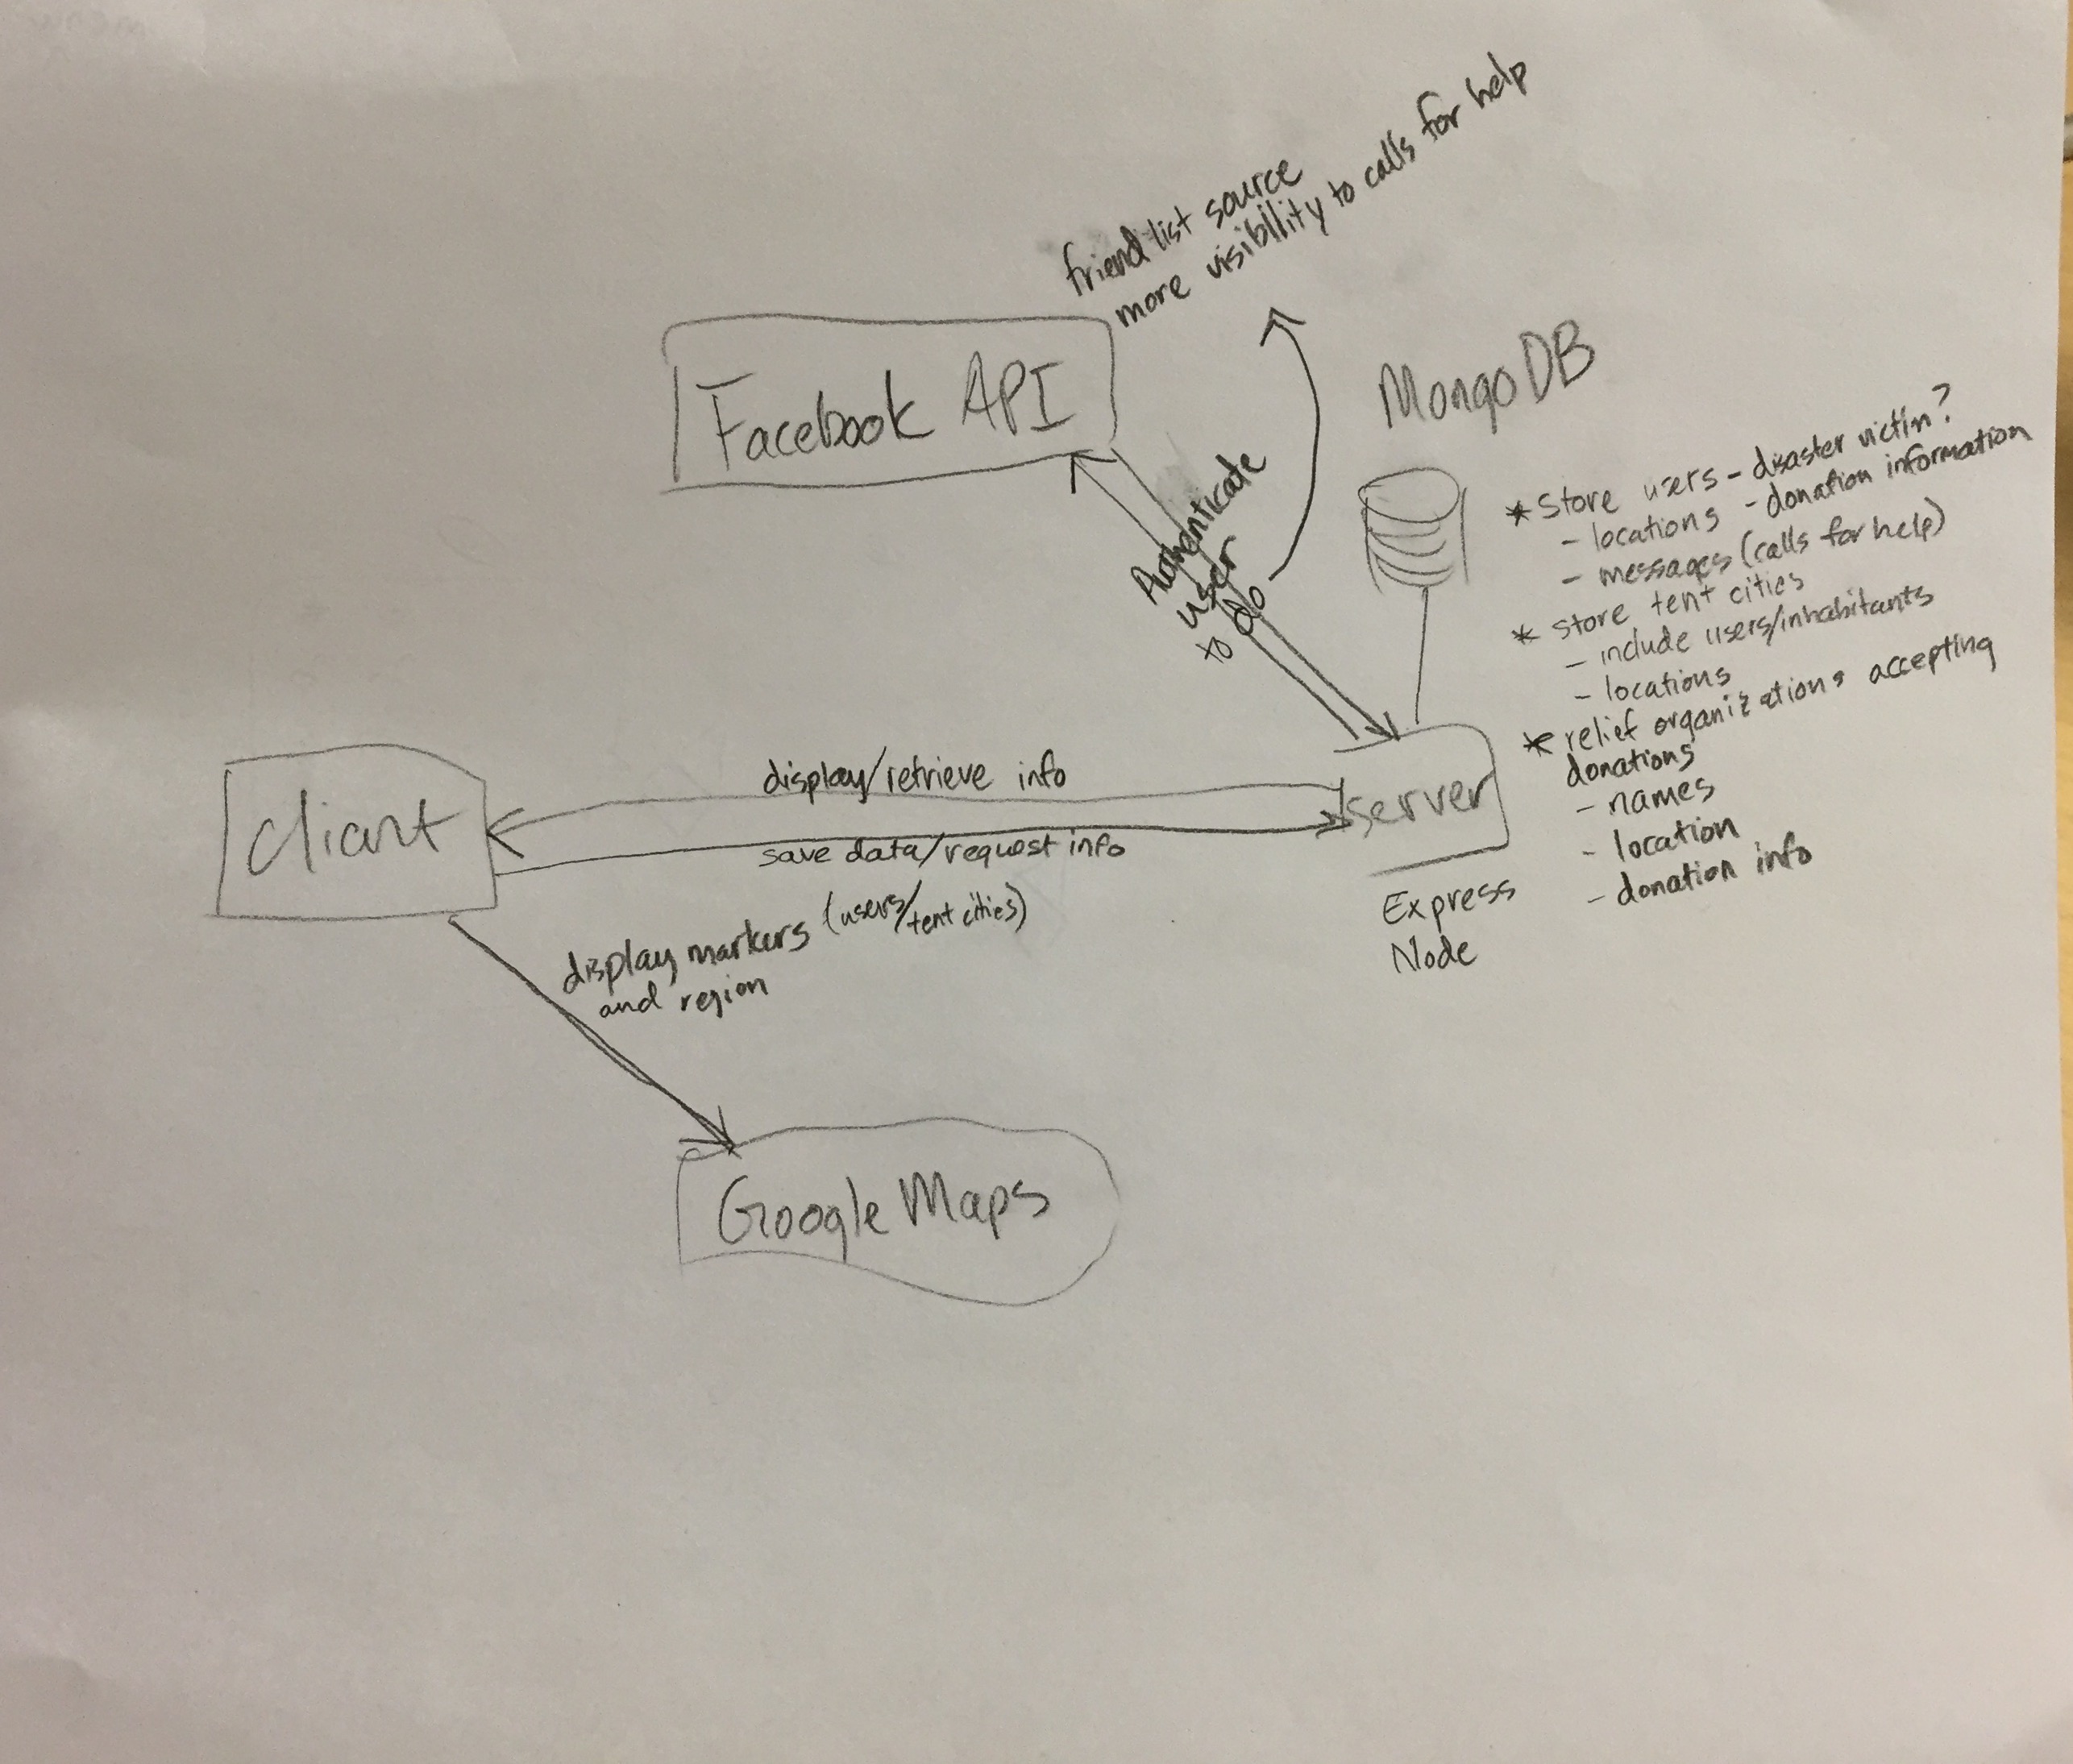 friend list source
more visibility to calls for help
Facebook API
MongoDB
Authenticate
user
to do
* Store users - disaster victim?
- locations - donation information
- messages (calls for help)
* store tent cities
- include users/inhabitants
- locations
* relief organizations accepting
donations
- names
- location
- donation info
display/retrieve info
client
server
save data/request info
Express
Node
display markers (users/tent cities)
and region
Google Maps